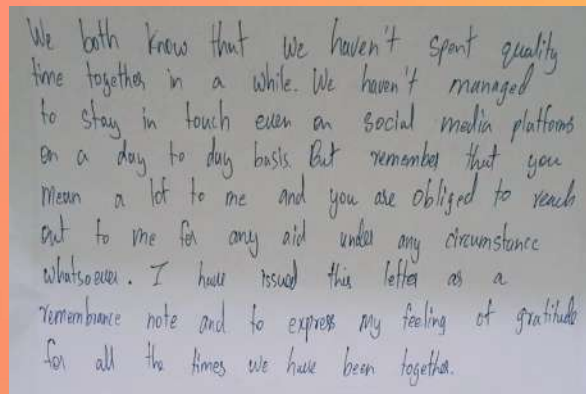 We both know that we haven't spent quality
time together in a while. We haven't managed
to stay in touch even on social media platforms
on a day to day basis. But remember that you
mean a lot to me and you are obliged to reach
out to me for any aid under any circumstance
whatsoever. I have issued this letter as a
remembrance note and to express my feeling of gratitude
for all the times we have been together.